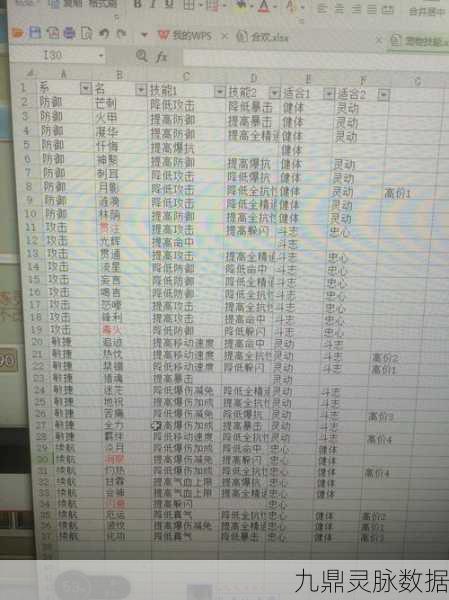 复制
B I U
合并居中
我的WPS 合欢.xlsx 宠物技能.x
I30 fx
A B C D E F
1 系 名 技能1 技能2 适合1 适合2
2 防御 芒刺 降低攻击 降低暴击 健体 灵动
3 防御 火甲 提高防御 提高暴击 健体 灵动
4 防御 凝华 提高防御 提高全精通 健体 灵动
5 防御 忏悔 提高爆抗 健体
6 防御 神聚 提高防御 提高爆抗 健体 灵动
7 防御 刺耳 降低攻击 降低爆抗 健体 灵动
8 防御 月影 降低攻击 降低全抗性 健体 灵动 高价1
9 防御 涟漪 降低攻击 降低全精通 健体 灵动
10 防御 林荫 提高防御 提高全抗性 健体 灵动
11 攻击 贯注 提高攻击 提高躲闪 斗志 忠心
12 攻击 光辉 提高命中 斗志
13 攻击 贯通 提高攻击 提高全精通 斗志 忠心
14 攻击 凌星 降低防御 降低命中 斗志 忠心
15 攻击 妄言 降低防御 降低全精通 斗志 忠心
16 攻击 降低防御 降低全抗性 斗志 忠心
17 攻击 怒嚎 提高攻击 提高全抗性 斗志 忠心
18 攻击 锋利 提高攻击 提高命中 斗志 忠心
19 攻击 毒火 降低防御 降低躲闪 斗志 忠心
20 敏捷 追迹 提高移动速度 提高命中 灵动 斗志
21 敏捷 热忱 提高移动速度 提高全抗性 灵动 斗志 高价2
22 敏捷 禁锢 降低移动速度 降低躲闪 灵动 斗志 高价1
敏捷 猎魂 提高暴击 灵动
敏捷 迷茫 降低爆伤减免 降低全精通 灵动 斗志
敏捷 地祝 提高爆伤加成 提高全抗性 灵动 斗志
26 敏捷 苦痛 降低爆伤减免 降低全抗性 灵动 斗志 高价3
27 敏捷 全力 提高爆伤加成 提高暴击 灵动 斗志
28 敏捷 羁绊 降低移动速度 降低全抗性 灵动 斗志 高价4
29 续航 降低爆伤加成 降低命中 忠心 健体
30 续航 提高爆伤减免 提高躲闪 忠心 健体
31 续航 灼热 降低爆伤加成 降低全抗性 忠心 健体 高价4
续航 甘霖 提高气血上限 提高全精通 忠心 健体
续航 提高气血上限 提高全抗性 忠心 健体
34 续航 闪避 提高躲闪 忠心
35 续航 厄运 降低真气 降低全抗性 忠心 健体 高价2
续航 提高爆伤减免 提高全抗性 忠心 健体 高价1
37 续航 化功 降低真气 降低暴击 忠心 健体
九鼎灵脉数据